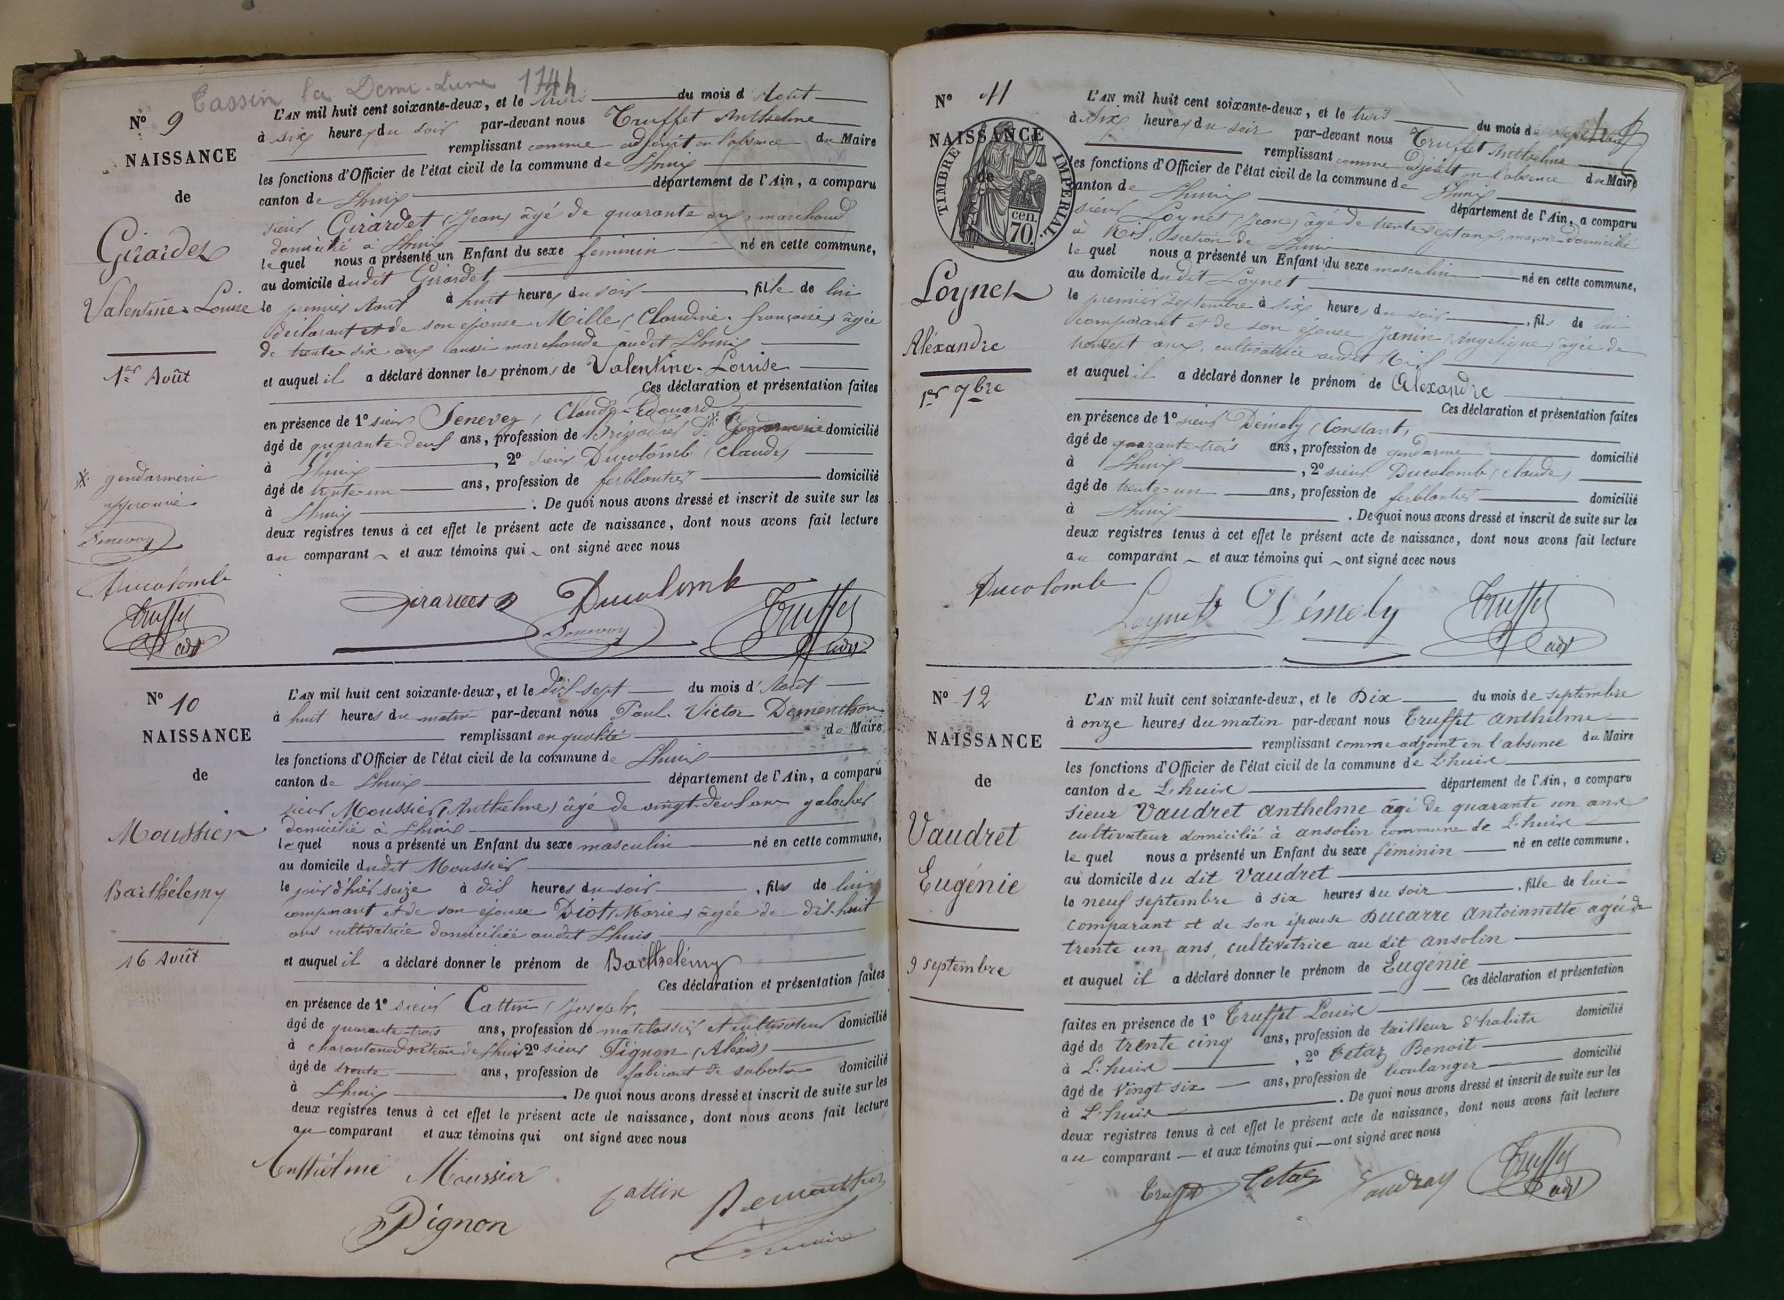 Tassin la Demi-Lune 1744
N° 9
NAISSANCE
de
Girardet
Valentine-Louise
1er Août
gendarmerie
approuvé
Ducolomb
Truffet
adjt
L'AN mil huit cent soixante-deux, et le trois du mois d'Août
à six heures du soir par-devant nous Truffet Anthelme
remplissant comme adjoint en l'absence du Maire
les fonctions d'Officier de l'état civil de la commune de Lhuis
canton de Lhuis département de l'Ain, a comparu
sieur Girardet (Jean) âgé de quarante ans, marchand
domicilié à Lhuis
lequel nous a présenté un Enfant du sexe féminin né en cette commune,
au domicile dudit Girardet
le premier Août à huit heures du soir, fille de lui
déclarant et de son épouse Mille (Claudine-françoise) âgée
de trente-six ans aussi marchande audit Lhuis
et auquel il a déclaré donner les prénoms de Valentine-Louise
Ces déclaration et présentation faites
en présence de 1° sieur Jenevey (Claude-Edouard)
âgé de quarante-deux ans, profession de Brigadier de domicilié
à Lhuis, 2° sieur Ducolomb (Claude)
âgé de trente-un ans, profession de ferblantier domicilié
à Lhuis. De quoi nous avons dressé et inscrit de suite sur les
deux registres tenus à cet effet le présent acte de naissance, dont nous avons fait lecture
au comparant et aux témoins qui ont signé avec nous
Ducolomb Truffet
adjt
N° 10
NAISSANCE
de
Moussier
Barthélemy
16 Août
L'AN mil huit cent soixante-deux, et le dix-sept du mois d'Août
à huit heures du matin par-devant nous Paul-Victor Dementhon
remplissant en qualité de Maire
les fonctions d'Officier de l'état civil de la commune de Lhuis
canton de Lhuis département de l'Ain, a comparu
sieur Moussier (Anthelme) âgé de vingt-deux ans galochier
domicilié à Lhuis
lequel nous a présenté un Enfant du sexe masculin né en cette commune,
au domicile dudit Moussier
le jour d'hier seize à dix heures du soir, fils de lui
comparant et de son épouse Diot (Marie) âgée de dix-huit
ans cultivatrice domiciliée audit Lhuis
et auquel il a déclaré donner le prénom de Barthélémy
Ces déclaration et présentation faites
en présence de 1° sieur Cattin (Joseph)
âgé de quarante-trois ans, profession de matelassier et cultivateur domicilié
à section de Lhuis 2° sieur Pignon (Alexis)
âgé de trente ans, profession de fabricant de sabots domicilié
à Lhuis. De quoi nous avons dressé et inscrit de suite sur les
deux registres tenus à cet effet le présent acte de naissance, dont nous avons fait lecture
au comparant et aux témoins qui ont signé avec nous
Anthelme Moussier Cattin Dementhon
Pignon
N° 11
NAISSANCE
de
TIMBRE IMPÉRIAL
70. cen.
Loynet
Alexandre
1er 7bre
L'AN mil huit cent soixante-deux, et le trois du mois de septembre
à six heures du soir par-devant nous Truffet Anthelme
remplissant comme adjoint en l'absence du Maire
les fonctions d'Officier de l'état civil de la commune de Lhuis
canton de Lhuis département de l'Ain, a comparu
sieur Loynet (Jean) âgé de trente-sept ans, maçon domicilié
à section de Lhuis
lequel nous a présenté un Enfant du sexe masculin né en cette commune,
au domicile dudit Loynet
le premier septembre à six heures du soir, fils de lui
comparant et de son épouse Janin (Angélique) âgée de
ans, cultivatrice audit
et auquel il a déclaré donner le prénom de Alexandre
Ces déclaration et présentation faites
en présence de 1° sieur Démely (Constant)
âgé de quarante-trois ans, profession de gendarme domicilié
à Lhuis, 2° sieur Ducolomb (Claude)
âgé de trente-un ans, profession de ferblantier domicilié
à Lhuis. De quoi nous avons dressé et inscrit de suite sur les
deux registres tenus à cet effet le présent acte de naissance, dont nous avons fait lecture
au comparant et aux témoins qui ont signé avec nous
Ducolomb Loynet Démely Truffet
adjt
N° 12
NAISSANCE
de
Vaudret
Eugénie
9 septembre
L'AN mil huit cent soixante-deux, et le Dix du mois de septembre
à onze heures du matin par-devant nous Truffet anthelme
remplissant comme adjoint en l'absence du Maire
les fonctions d'Officier de l'état civil de la commune de L'huis
canton de L'huis département de l'Ain, a comparu
sieur Vaudret anthelme âgé de quarante un ans
cultivateur domicilié à ansolin commune de L'huis
lequel nous a présenté un Enfant du sexe féminin né en cette commune,
au domicile du dit Vaudret
le neuf septembre à six heures du soir, fille de lui
comparant et de son épouse Ducarre antoinnette agée de
trente un ans, cultivatrice au dit ansolin
et auquel il a déclaré donner le prénom de Eugénie
Ces déclaration et présentation
faites en présence de 1° Truffet Louis
âgé de trente cinq ans, profession de tailleur d'habits domicilié
à L'huis, 2° Tetaz Benoit
âgé de Vingt six ans, profession de boulanger domicilié
à L'huis. De quoi nous avons dressé et inscrit de suite sur les
deux registres tenus à cet effet le présent acte de naissance, dont nous avons fait lecture
au comparant et aux témoins qui ont signé avec nous
Truffet Tetaz Vaudray Truffet
adjt